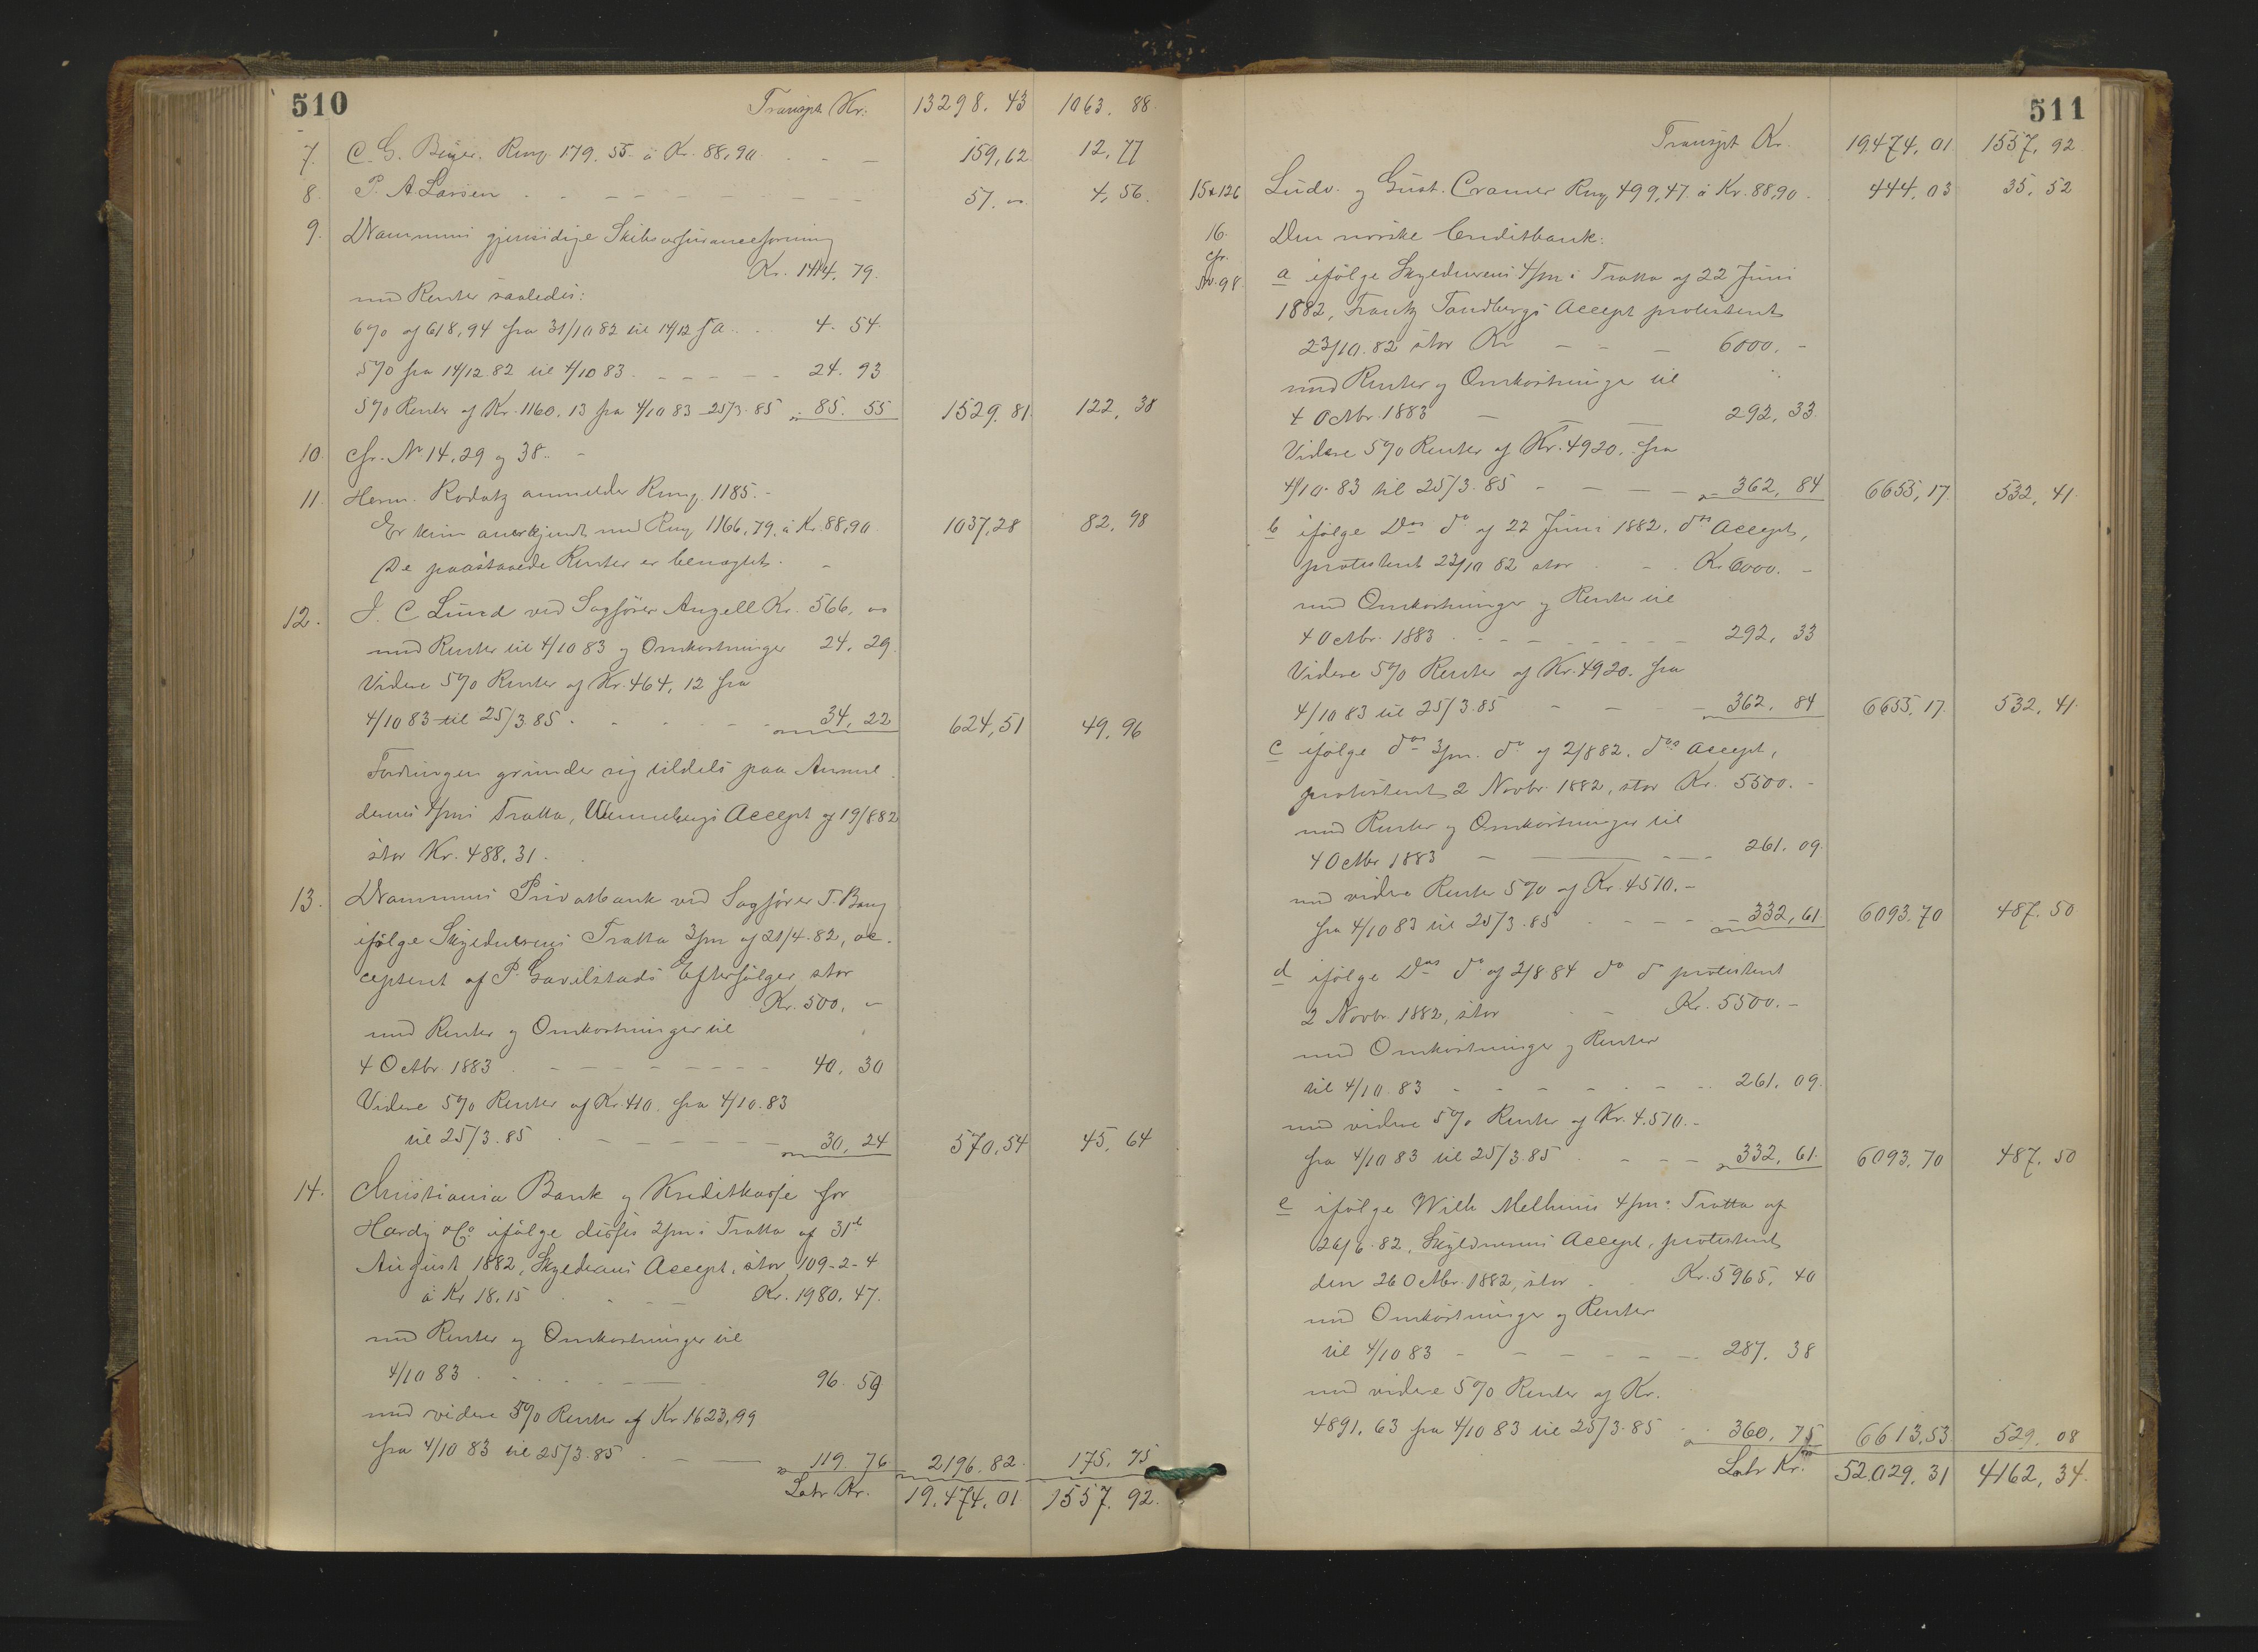 510
Transpt. Kr. 13298. 43 1063. 88.
7. C. G. Beijer. Rmq 179. 55. à Kr. 88,90. 159,62. 12,77
8. P. A Larsen 57. " 4,56.
9. Drammens gjensidige Skibsassuranceforening
Kr. 1414. 79.
med Renter saaledes:
6% af 618,94 fra 31/10 82 til 14/12 s.A. 4. 54.
5% fra 14/12. 82 til 4/10 83. 24. 93
5% Renter af Kr. 1160. 13 fra 4/10 83 - 25/3. 85 " 85. 55 1529. 81. 122, 38
10. cfr. No 14, 29 og 38.
11. Herm. Rodatz anmelder Rmq. 1185.-
Er kun anerkjendt med Rmq 1166,79. à Kr. 88,90. 1037,28 82, 98
De paastaaede Renter er benægtet.
12. J. C Lund ved Sagfører Angell Kr. 566, "
med Renter til 4/10 83 og Omkostninger 24. 29.
Videre 5% Renter af Kr. 464, 12 fra
4/10 83 til 25/3. 85. 34, 22 624,51 49, 96
Fordringen grunder sig tildels paa Anmel
derens 4/m Tratta, Accept af 19/8 82
stor Kr. 488. 31.
13. Drammens Privatbank ved Sagfører T. Bang
ifølge Skyldnerens Tratta 3/m af 21/4. 82, ac-
cepteret af P. Efterfølger stor
Kr. 500, "
med Renter og Omkostninger til
4 Octbr. 1883 40, 30
Videre 5% Renter af Kr. 410. fra 4/10. 83
til 25/3. 85 30, 24 570,54 45, 64
14. Christiania Bank og Kreditkasse for
Hardy & Co. ifølge disses 2/m Tratta af 31te
August 1882, Skyldners Accept, stor 109-2-4
à Kr 18.15 Kr. 1980. 47.
med Renter og Omkostninger til
4/10 83. 96. 59
med videre 5% Renter af Kr 1623,99
fra 4/10 83 til 25/3. 85 119. 76 2196. 82. 175, 75
Latr Kr. 19.474. 01 1557. 92.
511
Transpt Kr. 19474. 01 1557. 92.
15 & 126 Ludv. og Gust. Cramer Rmq 499,47. à Kr. 88,90. 444, 03 35, 52
16. Den norske Creditbank:
cfr.
No. 98
a ifølge Skyldnerens 4/m Tratta af 22 Juni
1882, Frantz Tandbergs Accept protesteret
23/10. 82 stor Kr 6000. -
med Renter og Omkostninger til
4 Octbr. 1883 292, 33
Videre 5% Renter af Kr. 4920. fra
4/10. 83 til 25/3. 85 362, 84 6655,17. 532, 41.
b ifølge Ds do af 22 Juni 1882. ds Accept,
protesteret 23/10 82 stor Kr. 6000. -
med Omkostninger og Renter til
4 Octbr. 1883 292, 33
Videre 5% Renter af Kr. 4920. fra
4/10 83 til 25/3. 85 362, 84 6655, 17. 532, 41.
c ifølge ds 3/m. do af 2/8 82. ds Accept,
protesteret 2 Novbr. 1882, stor Kr. 5500. -
med Renter og Omkostninger til
4 Octbr 1883 261. 09.
med videre Renter 5% af Kr. 4510. -
fra 4/10 83 til 25/3. 85 332, 61. 6093. 70 487. 50
d ifølge Ds do af 2/8 84 do do protesteret
2 Novbr. 1882, stor Kr. 5500. -
med Omkostninger og Renter
til 4/10. 83 261. 09.
med videre 5% Renter af Kr. 4.510. -
fra 4/10 83 til 25/3. 85 332, 61. 6093, 70 487. 50
e ifølge Wilh Melhuus 4/m Tratta af
26/6. 82, Skyldnerens Accept, protesteret
den 26 Octbr. 1882, stor Kr. 5965, 40
med Omkostninger og Renter
til 4/10 83 287. 38
med videre 5% Renter af Kr.
4891. 63 fra 4/10 83 til 25/3. 85 360, 75 6613,53. 529, 08
Latr Kr. 52.029, 31 4162, 34.